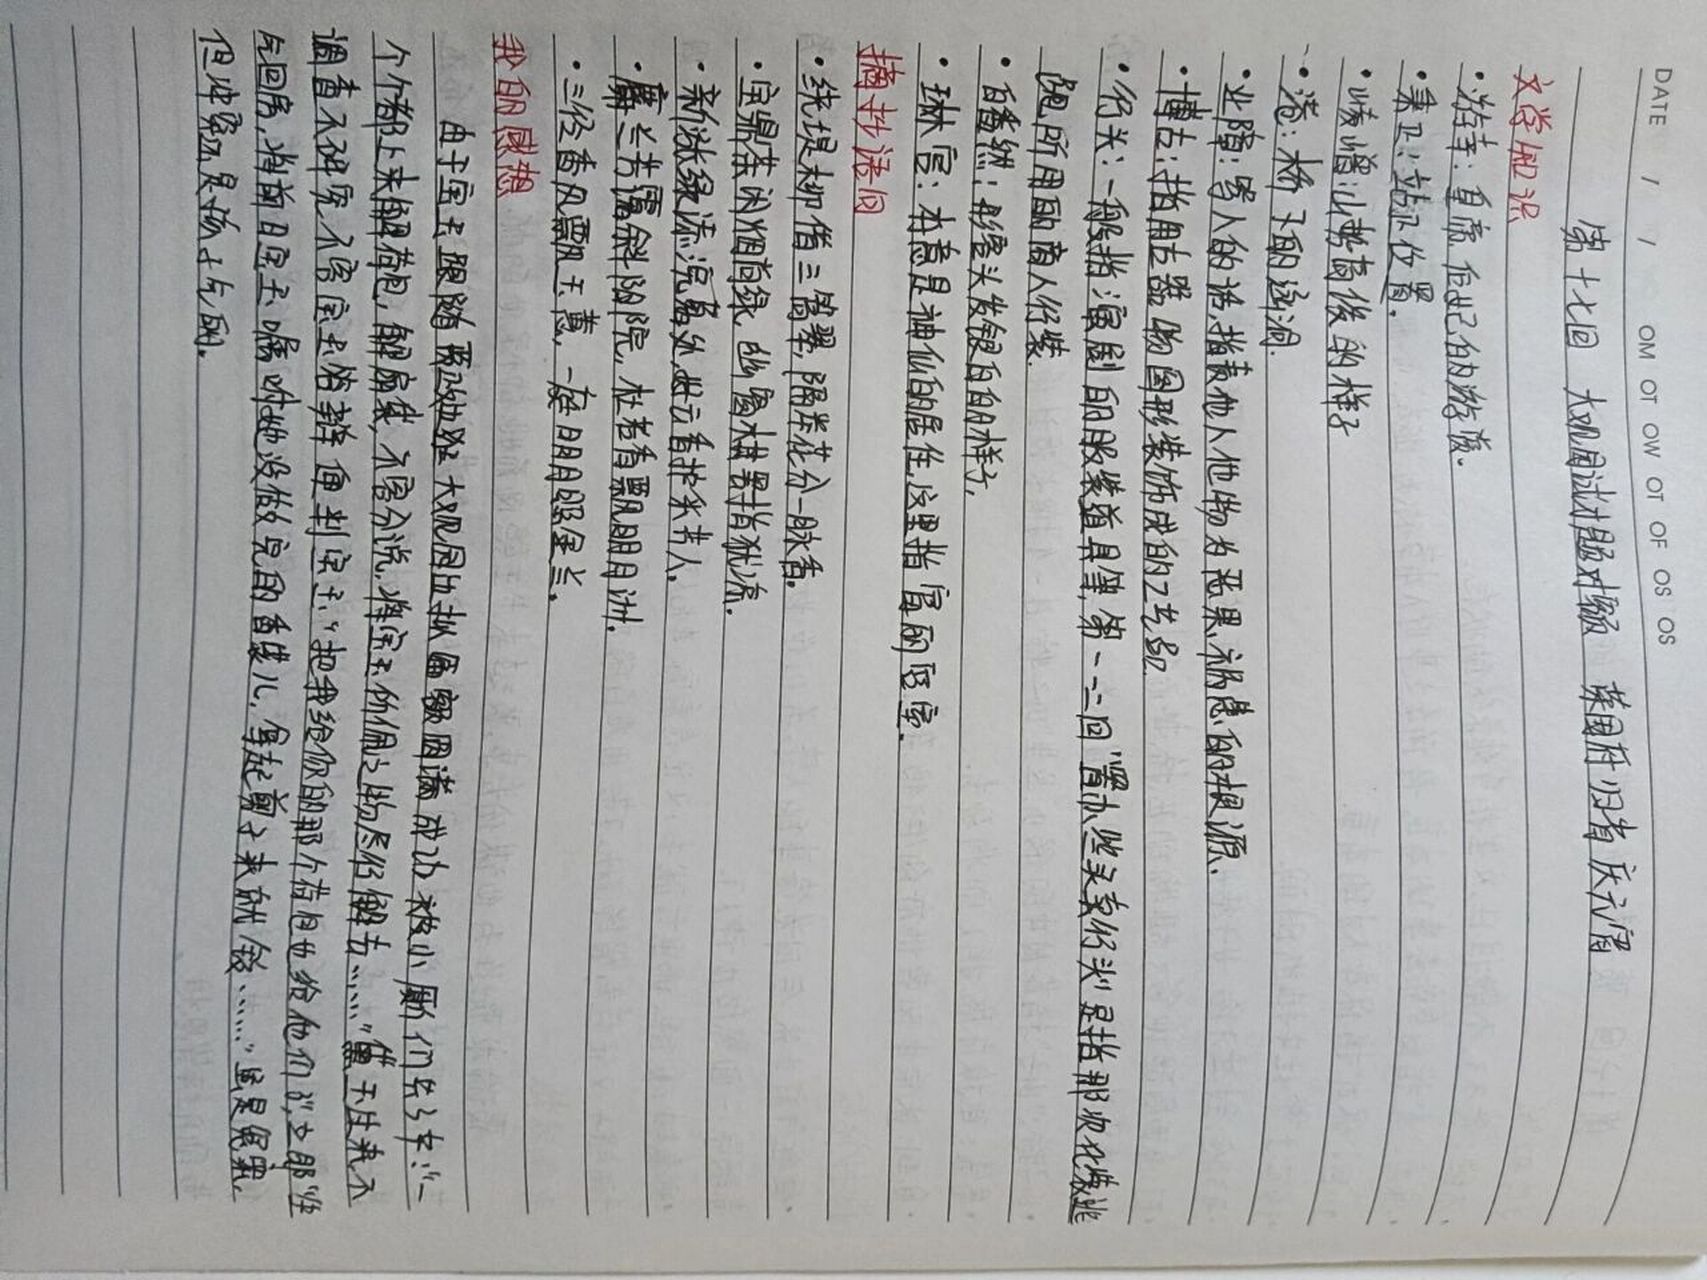 DATE / / OM OT OW OT OF OS OS
第十七回 大观园试才题对额 荣国府归省庆元宵
文学知识
·游幸:皇帝后妃的游逛.
·秉正:站正位置.
·峥嵘:山势高俊的样子
·港:桥下的涵洞.
·业障:骂人的话,指责他人他物为恶果、祸患的根源.
·博古:指用古器物图形装饰成的工艺品
·行头:一般指演剧的服装道具等,第一二回"置办些头条行头"是指那次化装逃
跑所用的商人行装.
·皤然:形容头发银白的样子.
·琳宫:本意是神仙的居住,这里指宫的区室.
摘抄语句
·绕堤柳借三篙翠,隔岸花分一脉香.
·宝鼎茶闲烟尚绿,幽窗棋罢指犹凉.
·新涨绿添浣葛处,好云香护采芹人.
·麝兰芳霭斜阳院,杜若香飘明月洲.
·三径香风飘玉蕙,一庭明月照金兰.
我的感想
由于宝玉跟随贾政处处大观园出拟匾额圆满成功被小厮们
个个都上来解荷包,解扇袋,不容分说,将宝玉所佩之物尽行解去……"黛玉过来不
调查不研究不容宝玉给解释便判宝玉:"把我给你的那个荷包也给他们了"
气回房,将前日宝玉嘱咐她没做完的香袋儿,拿起剪子来就铰……"虽是
但